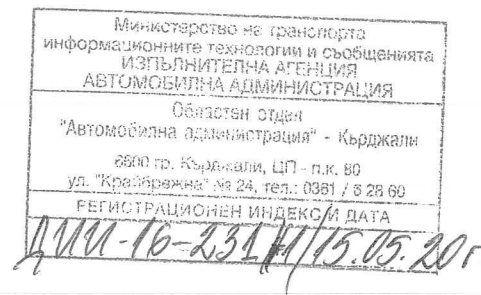 Министерство на транспорта
информационните технологии и съобщенията
ИЗПЪЛНИТЕЛНА АГЕНЦИЯ
АВТОМОБИЛНА АДМИНИСТРАЦИЯ
Областен отдел
"Автомобилна администрация" - Кърджали
6600 гр. Кърджали, ЦП - п.к. 80
ул. "Крайбрежна" № 24, тел.: 0361 / 6 28 60
РЕГИСТРАЦИОНЕН ИНДЕКС И ДАТА
-16-231 15.05.20г